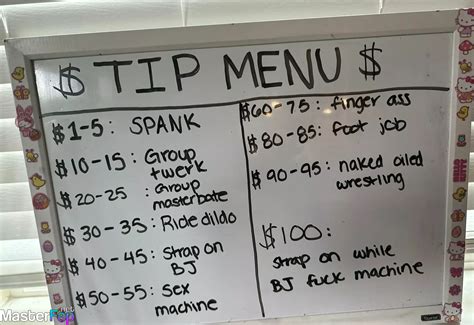 $ TIP MENU $
$1-5: SPANK
$10-15: Group
twerk
$20-25: Group
masterbate
$30-35: Ride dildo
$40-45: Strap on
BJ
$50-55: Sex
machine
$60-75: finger ass
$80-85: foot job
$90-95: naked oiled
wrestling
$100:
strap on while
BJ fuck machine
MasterFap
.net